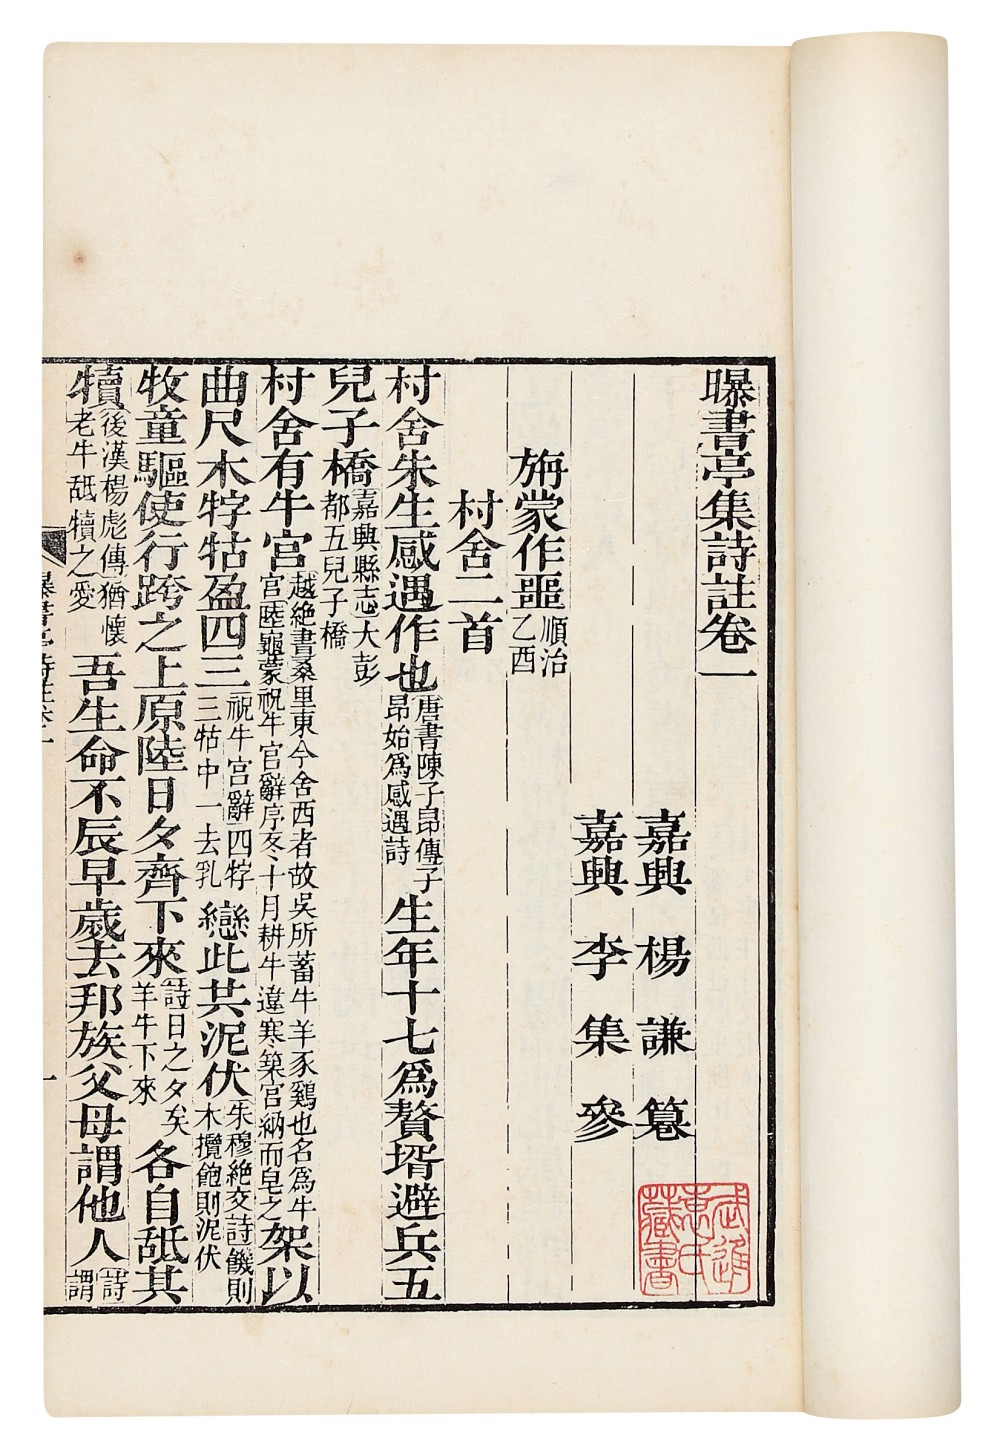 曝書亭集詩註卷一
嘉興 楊 謙 篹
嘉興 李 集 參
旃蒙作噩順治乙酉
村舍二首
村舍朱生感遇作也唐書陳子昂傳子昂始爲感遇詩生年十七爲贅壻避兵五
兒子橋嘉興縣志大彭都五兒子橋
村舍有牛宮越絶書桑里東今舍西者故吳所蓄牛羊豕鷄也名爲牛宮陸龜蒙祝牛宮辭序冬十月耕牛違寒築宮納而皂之架以
曲尺木牸牯盈四三祝牛宮辭四牸三牯中一去乳戀此共泥伏朱穆絶交詩饑則木攬飽則泥伏
牧童驅使行跨之上原陸日夕齊下來詩日之夕矣羊牛下來各自䑛其
犢後漢楊彪傳猶懷老牛䑛犢之愛吾生命不辰早歲去邦族父母謂他人詩謂
曝書亭詩註卷一
一
武進
氏
藏書